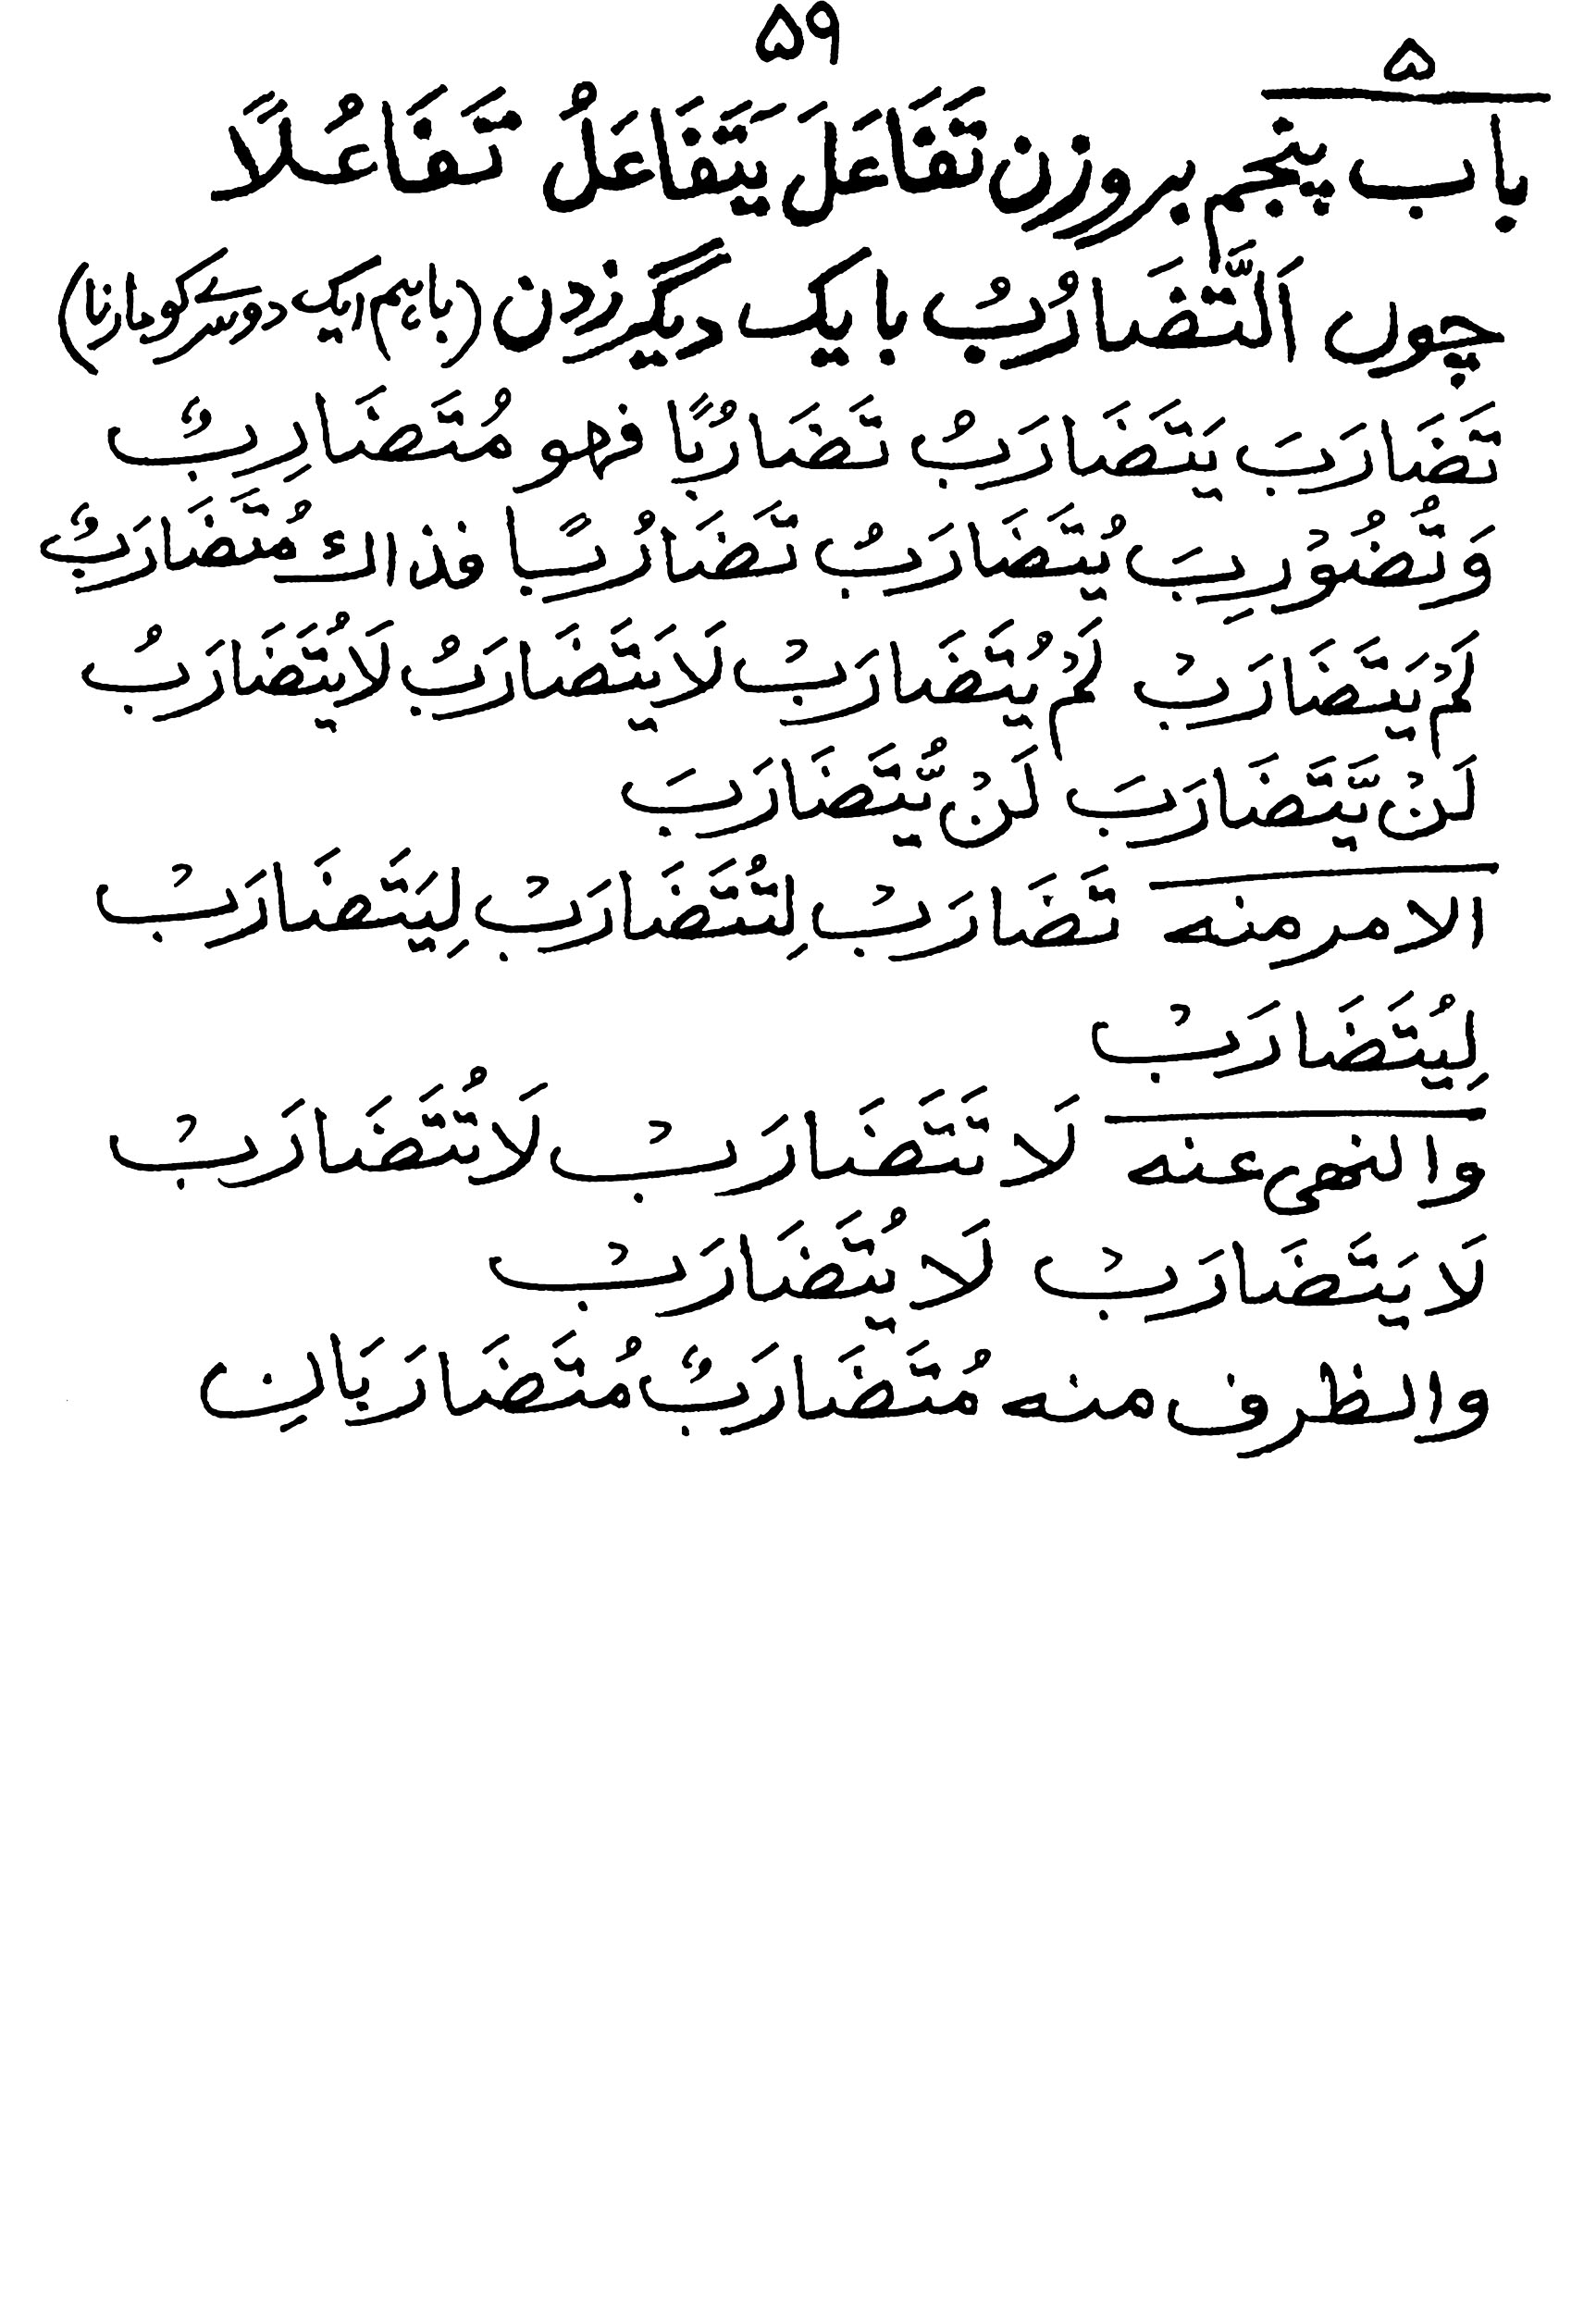 ۵۹
۵
باب پنجم بروزن تَفَاعَلَ يَتَفَاعَلُ تَفَاعُلًا
چوں اَلتَّضَارُبُ با یک دیگر زدن (باہم ایک دوسرے کو مارنا)
تَضَارَبَ يَتَضَارَبُ تَضَارُبًا فهو مُتَضَارِبٌ
وَتُضُوْرِبَ يُتَضَارَبُ تَضَارُبًا فذاك مُتَضَارَبٌ
لَمْ يَتَضَارَبْ لَمْ يُتَضَارَبْ لَا يَتَضَارَبُ لَا يُتَضَارَبُ
لَنْ يَّتَضَارَبَ لَنْ يُّتَضَارَبَ
الامر منه تَضَارَبْ لِتُتَضَارَبْ لِيَتَضَارَبْ
لِيُتَضَارَبْ
والنهى عنه لَا تَتَضَارَبْ لَا تُتَضَارَبْ
لَا يَتَضَارَبْ لَا يُتَضَارَبْ
والظرف منه مُتَضَارَبٌ مُتَضَارَبَانِ